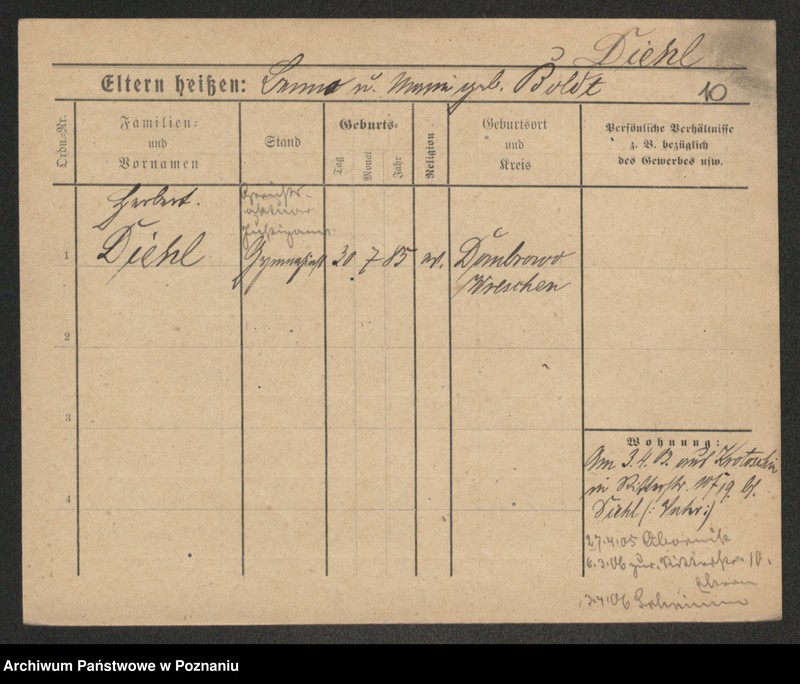 Diehl
Eltern heißen: u. Marie geb. Boldt
10
Ordn.-Nr.
Familien-
und
Vornamen
Stand
Geburts-
Tag
Monat
Jahr
Religion
Geburtsort
und
Kreis
Persönliche Verhältnisse
z. B. bezüglich
des Gewerbes usw.
Herbert.
Gerichts-
aktuar
1
Diehl
Gymnasiast
30
7
85
ev.
Dombrowo
Wreschen
2
3
4
Wohnung:
Am 3.4.03. aus Krotoschin
in Ritterstr.
Diehl
27.4.05 Obornik
6.3.06 zur. Ritterstr. 10.
Eltern
3.4.06
Archiwum Państwowe w Poznaniu